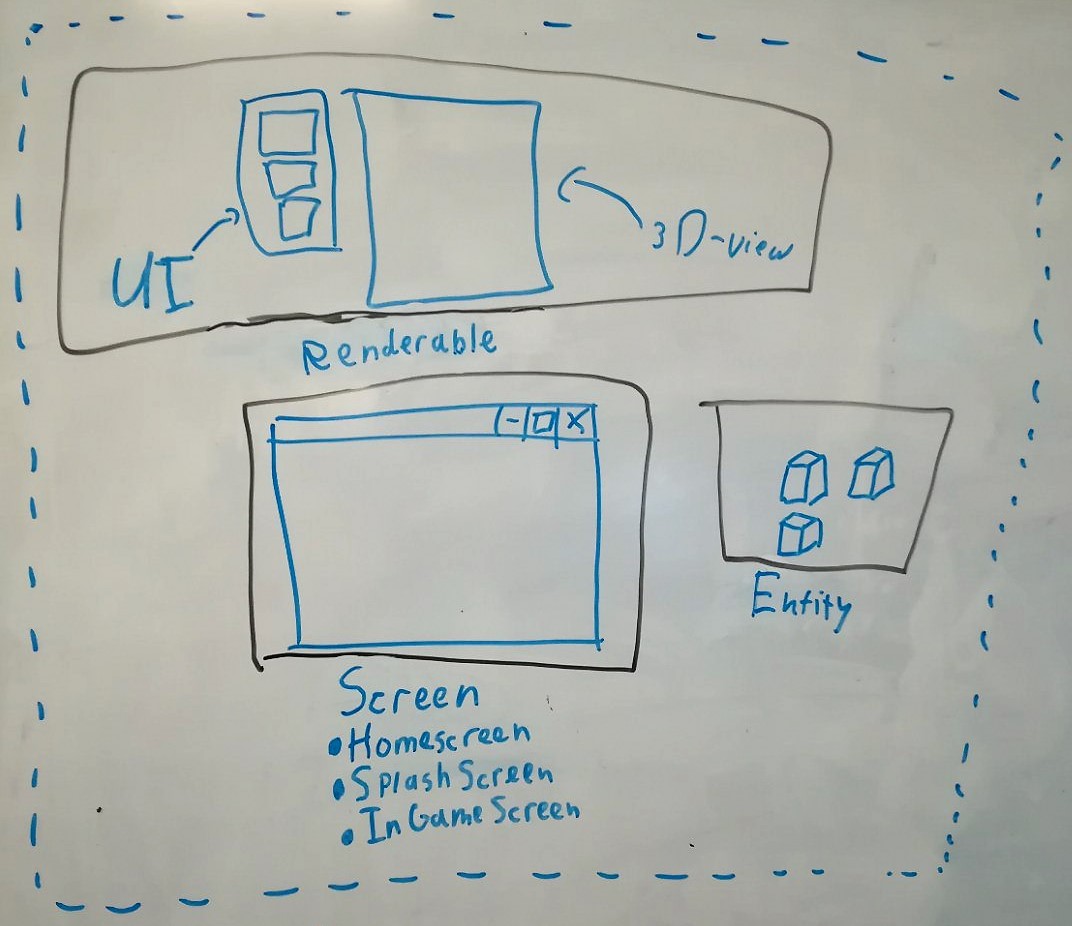 UI
3D-view
Renderable
Entity
Screen
•Homescreen
•SplashScreen
•InGameScreen